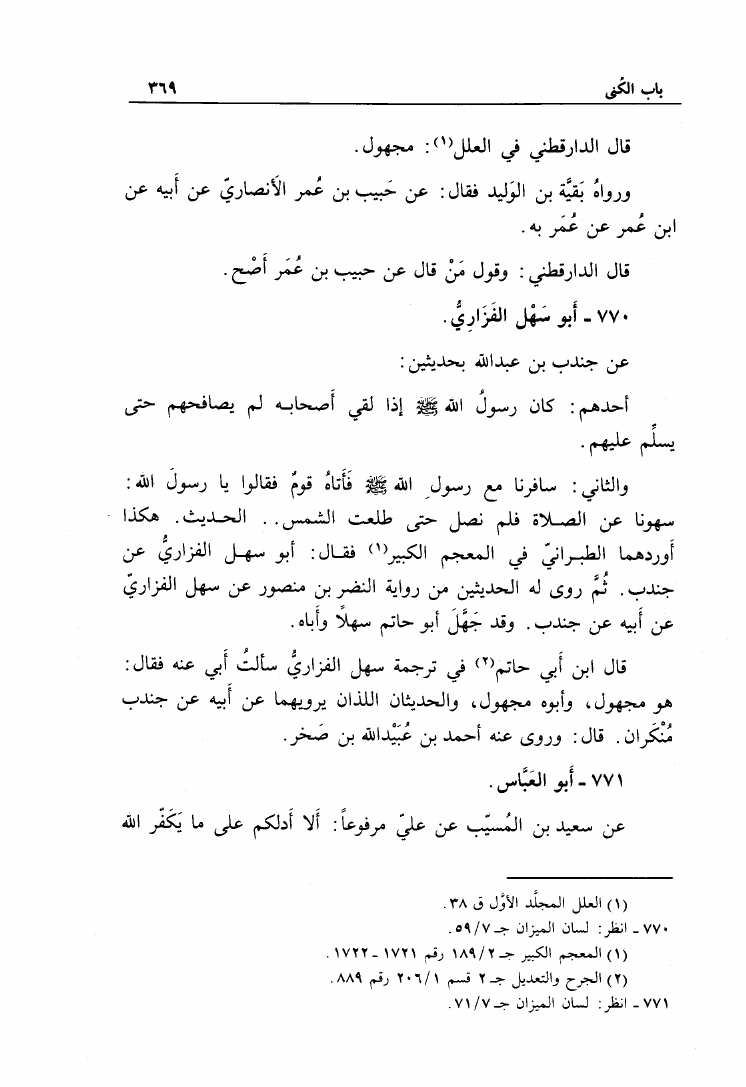 باب الكُنى ٣٦٩
قال الدارقطني في العلل(١): مجهول.
ورواهُ بَقيَّة بن الوَليد فقال: عن حَبيب بن عُمر الأَنصاريّ عن أَبيه عن
ابن عُمر عن عُمَر به.
قال الدارقطني: وقول مَنْ قال عن حبيب بن عُمَر أَصْح.
٧٧٠ - أَبو سَهْل الفَزَارِيُّ.
عن جندب بن عبدالله بحديثين:
أحدهم: كان رسولُ الله ﷺ إذا لقي أَصحابه لم يصافحهم حتى
يسلِّم عليهم.
والثاني: سافرنا مع رسولِ الله ﷺ فَأَتاهُ قومٌ فقالوا يا رسولَ الله:
سهونا عن الصلاة فلم نصل حتى طلعت الشمس.. الحديث. هكذا
أوردهما الطبرانيّ في المعجم الكبير(١) فقال: أبو سهل الفزاريُّ عن
جندب. ثُمَّ روى له الحديثين من رواية النضر بن منصور عن سهل الفزاريّ
عن أَبيه عن جندب. وقد جَهَّلَ أبو حاتم سهلاً وأَباه.
قال ابن أَبي حاتم(٢) في ترجمة سهل الفزاريُّ سألتُ أَبي عنه فقال:
هو مجهول، وأبوه مجهول، والحديثان اللذان يرويهما عن أَبيه عن جندب
مُنْكَران. قال: وروى عنه أحمد بن عُبَيْدالله بن صَخر.
٧٧١ - أَبو العَبَّاس.
عن سعيد بن المُسيّب عن عليّ مرفوعاً: أَلا أَدلكم على ما يَكَفّر الله
(١) العلل المجلَّد الأوَّل ق ٣٨.
٧٧٠ - انظر: لسان الميزان جـ ٥٩/٧.
(١) المعجم الكبير جـ ١٨٩/٢ رقم ١٧٢١ - ١٧٢٢.
(٢) الجرح والتعديل جـ ٢ قسم ٢٠٦/١ رقم ٨٨٩.
٧٧١ - انظر: لسان الميزان جـ ٧١/٧.